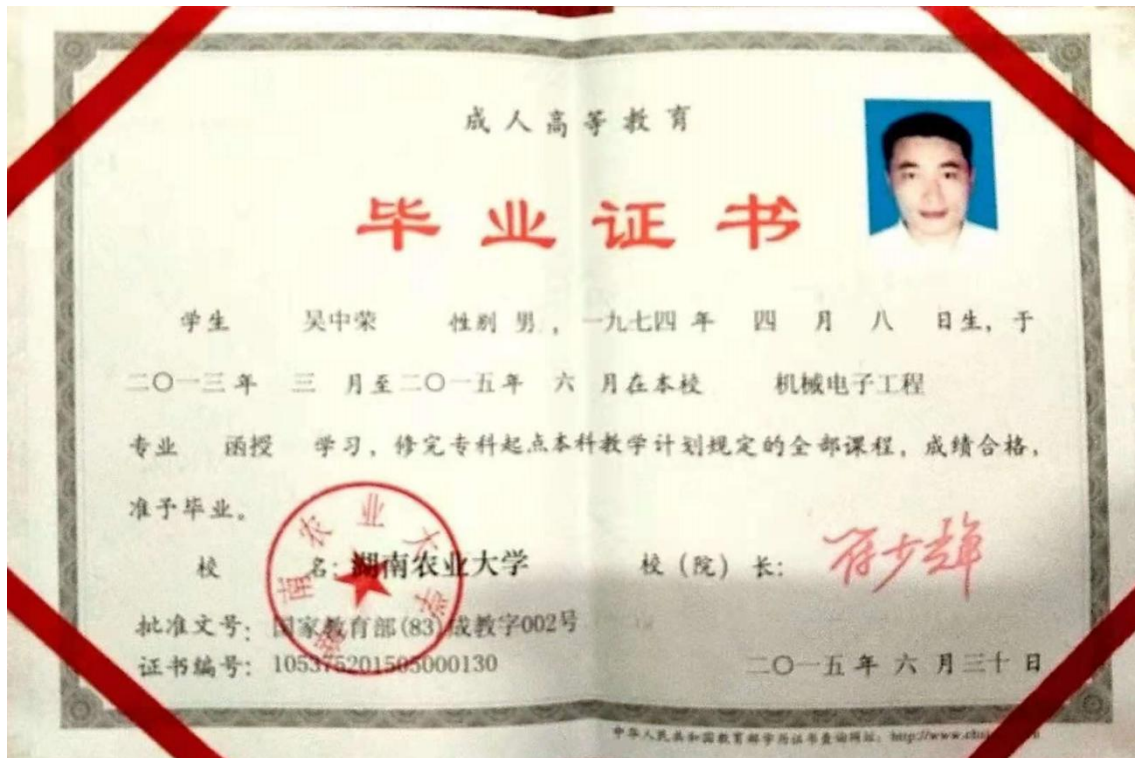 成人高等教育
毕业证书
学生 吴中荣 性别 男，一九七四年 四 月 八 日生，于
二〇一三年 三 月至二〇一五年 六 月在本校 机械电子工程
专业 函授 学习，修完专科起点本科教学计划规定的全部课程，成绩合格，
准予毕业。
校 名：湖南农业大学 校（院）长：符少辉
湖南农业大学
批准文号：国家教育部(83)成教字002号
证书编号：105375201505000130 二〇一五年 六 月三十日
中华人民共和国教育部学历证书查询网址：http://www.chsi